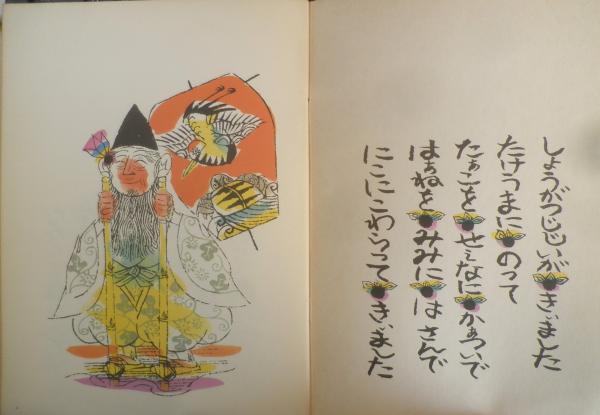 しょうがつじじいがきぃました
たけうまにのって
たぁこをせぇなにかぁついで
はぁねをみみにはさんで
にこにこわらって きぃました